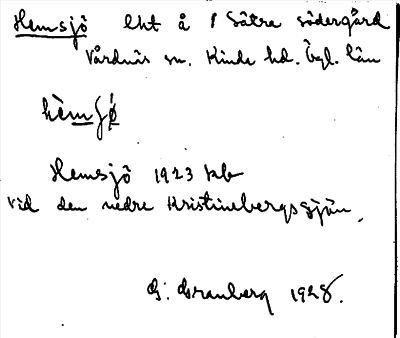 Hemsjö lht å 1 Sätra södergård
Vårdnäs sn. Kinda hd. Ögl. län
hèmʃø
Hemsjö 1923 kb
vid den nedre Kristinebergssjön.
G. Granberg 1928.